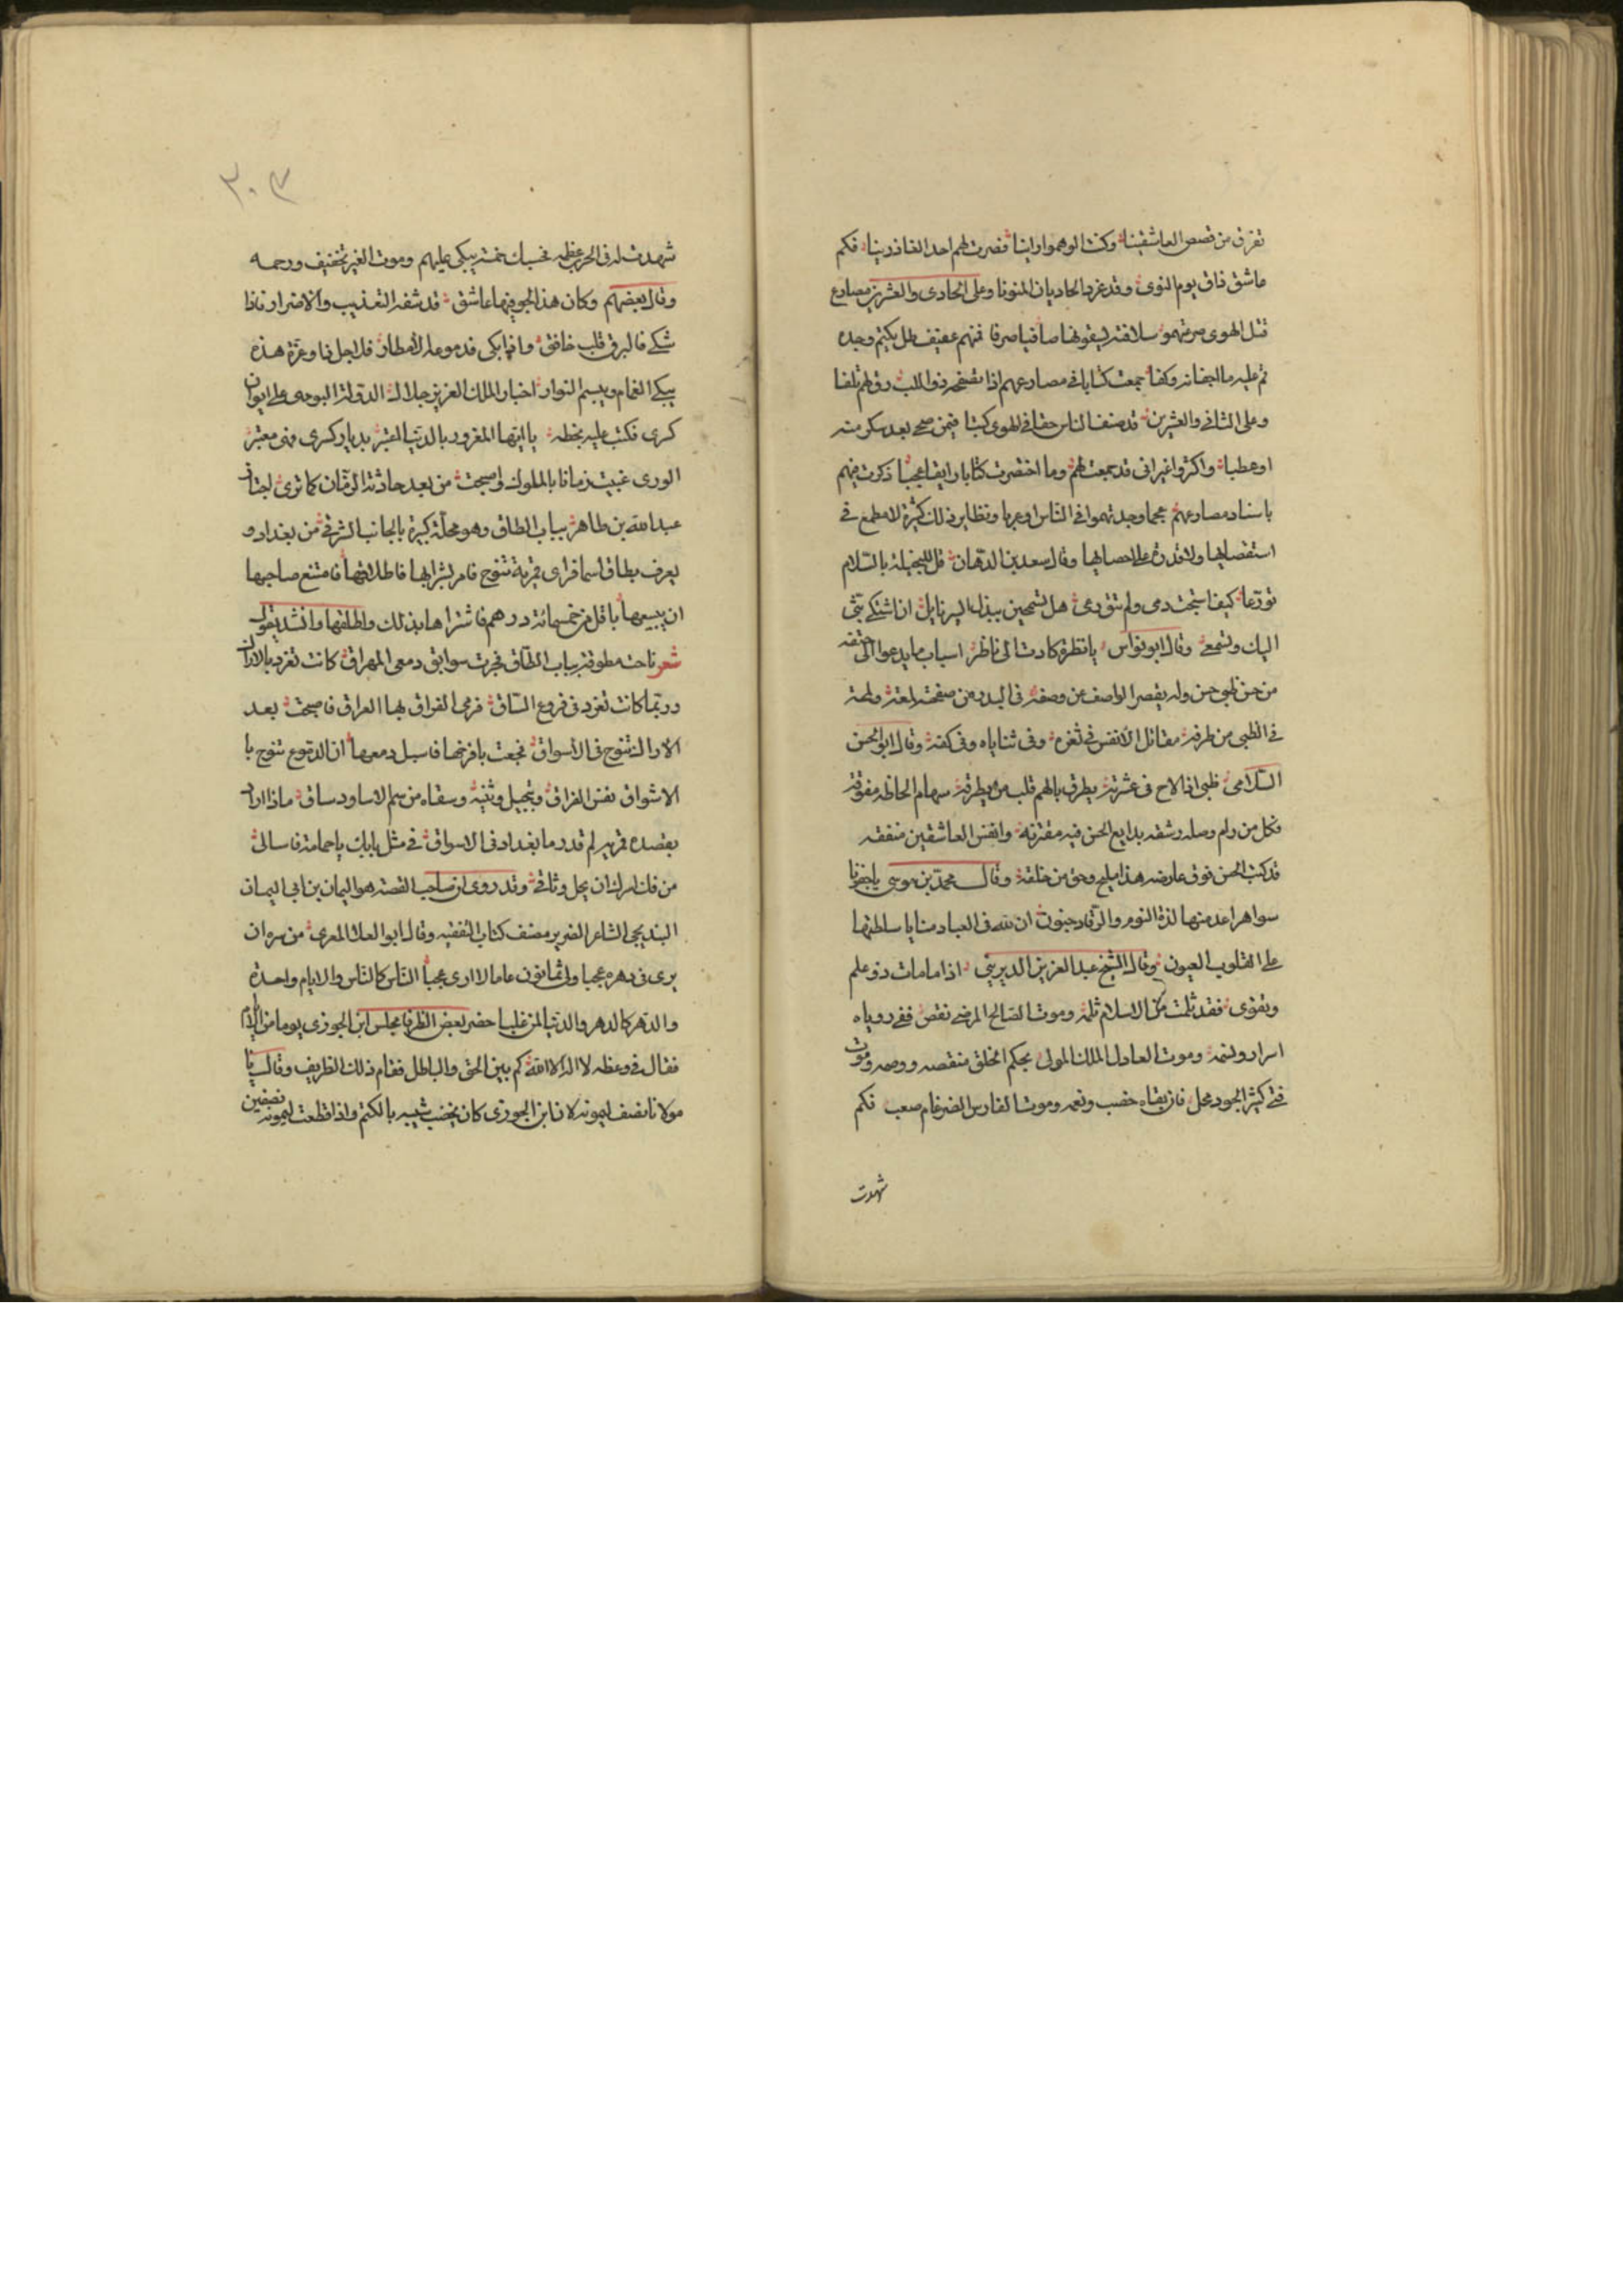 تفرق من قصص العاشقينا وكنت الوهموا رابنا فصرت لهم احد الغاذرينا فكم
عاشق ذاق يوم النوى وقد غرد الحاديان المنونا وعلى الحادى والعشرين مصارع
قتل الهوى صرعتهمو سلافته ليقونها صافيا صرفا فمنهم عفيف ظل يكتم وجده
نم عليه ما اجفانه وكفا جمعت كتابا فى مصارعهم اذا تصفحه ذو اللب رق لهم تلفا
وعلى الثانى والعشرين قد صنف الناس حقا فى الهوى كتبا فيمن صحى بعد سكر منه
او عطبا واكثروا غير انى قد جمعت لهم وما اختصرت كتابا رايقا عجبا ذكرت فيهم
باسناد مصارعهم عجما وجدتهموا فى الناس او عربا ونظاير ذلك كثيرة لا مطمع فى
استقصايها ولا قدرة على احصايها وقال سعد بن الدهان قل للبخيلة بالسلام
تورعا كيف استبحت دمى ولم تتورعى هل تسمحين ببذل ايسر نايل ان اشتكى بثى
اليك وتسمعى وقال ابو نواس يا نظرة كادت الى ناظر اسباب ما يدعوا الى حتفه
من حسن ظبى حسن وله يقصر الواصف عن وصفه فى البدر من صفحته لمعة ولمحة
فى الظبى من طرفه مقاتل الانفس فى ثغره وفى ثناياه وفى كفه وقال ابو الحسن
السلامى ظبى اذا لاح فى عشرته يطرق بالهم قلب من يطرقه سهام الحاظه مفوقة
فكل من رام وصله رشقه بدايع الحسن فيه مفترقه وانفس العاشقين متفقه
قد كتب الحسن فوق عارضه هذا مليح وحق من خلقه وقال محمد بن موسى يا جفونا
سواهرا عدمتها لذة النوم والرقاد جفون ان لله فى العباد منايا سلطتها
على القلوب العيون وقال الشيخ عبد العزيز الديرينى اذا ما مات ذو علم
وتقوى فقد ثلمت من الاسلام ثلمه وموت الصالح المرضى نقص ففى روياه
اسرار ونسمه وموت العادل الملك المولى بحكم الخلق منقصه ووصمه وموت
فتى كثير الجود محل فان بقاه خصب ونعمه وموت الفارس الضرغام صعب فكم
شهدت
٣٠٣
شهدت له فى الحرب عظمه فحسبك خمسة يبكى عليهم وموت الغير تخفيف ورحمه
وقال بعضهم وكان هذا الجو فيها عاشق قد شفه التعذيب والاضرار فاذا
شكى فالبرق قلب خافق واذا بكى فدموعه الامطار فلاجل ذا وعزة هذه
يبكى الغمام ويبسم النوار اخبار الملك العزيز جلال الدولة البويهى على ايوان
كسرى فكتب عليه بخطه يا ايها المغرور بالدنيا اعتبر بديار كسرى فهى معتبر
الورى غبيت زمانا بالملوك فاصبحت من بعد حادثة الزمان كما ترى اجتاز
عبد الله بن طاهر بباب الطاق وهو محلة كبيرة بالجانب الشرقى من بغداد و
يعرف بطاق اسما فراى قمرية تنوح فامر بشرايها فاطلاقها فامتنع صاحبها
ان يبيعها باقل من خمسمائة درهم فاشتراها بذلك واطلقها وانشد يقول
شعر ناحت مطوقة بباب الطاق فجرت سوابق دمعى المهراق كانت تغرد بالاراك
وربما كانت تغرد فى فروع الساق فرمى الفراق بها العراق فاصبحت بعد
الاراك تنوح فى الاسواق فجعت بافرخها فاسبل دمعها ان الدموع تنوح با
الاشواق تعس الفراق وبت حبل وتينه وسقاه من سم الاساود ساق ماذا اراد
بقصده قمرية لم تدر ما بغداد فى الاسواق فى مثل مابك يا حمامة فاسالى
من فك اسرك ان يحل وثاقى وقد روى ان صاحب القصة هو اليمان بن ابى اليمان
البندنيجى الشاعر الضرير مصنف كتاب التقفيه وقال ابو العلا المعرى من سره ان
يرى فى دهره عجبا ولى ثمانون عاما لا ارى عجبا الناس كالناس والايام واحدة
والدهر كالدهر والدنيا لمن غلبا حضر بعض الظرفا مجلس ابن الجوزى يوما من الايام
فقال فى وعظه لا اله الا الله كم بين الحق والباطل فقام ذلك الظريف وقال يا
مولانا نصف ليمونه لان ابن الجوزى كان يخضب شيبه بالكتم واذا قطعت ليمونه نصفين